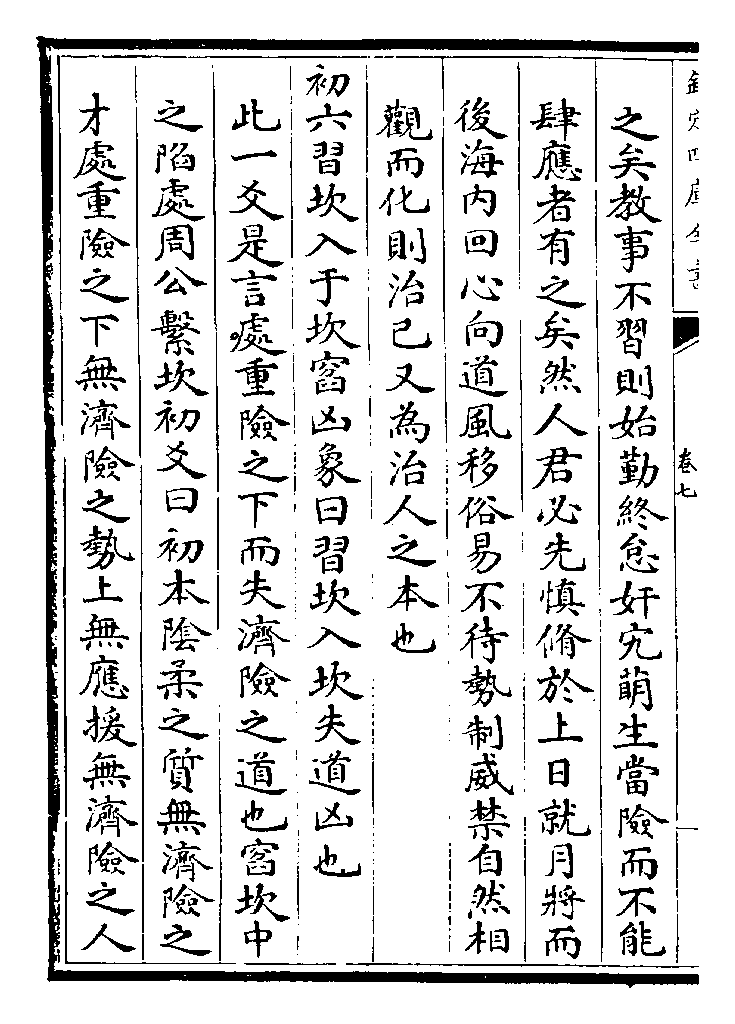 欽定四庫全書
卷七
之矣教事不習則始勤終怠奸宄萌生當險而不能
肆應者有之矣然人君必先慎脩於上日就月將而
後海内回心向道風移俗易不待勢制威禁自然相
觀而化則治已又為治人之本也
初六習坎入于坎窞凶象曰習坎入坎失道凶也
此一爻是言處重險之下而失濟險之道也窞坎中
之陷處周公繫坎初爻曰初本陰柔之質無濟險之
才處重險之下無濟險之勢上無應援無濟險之人